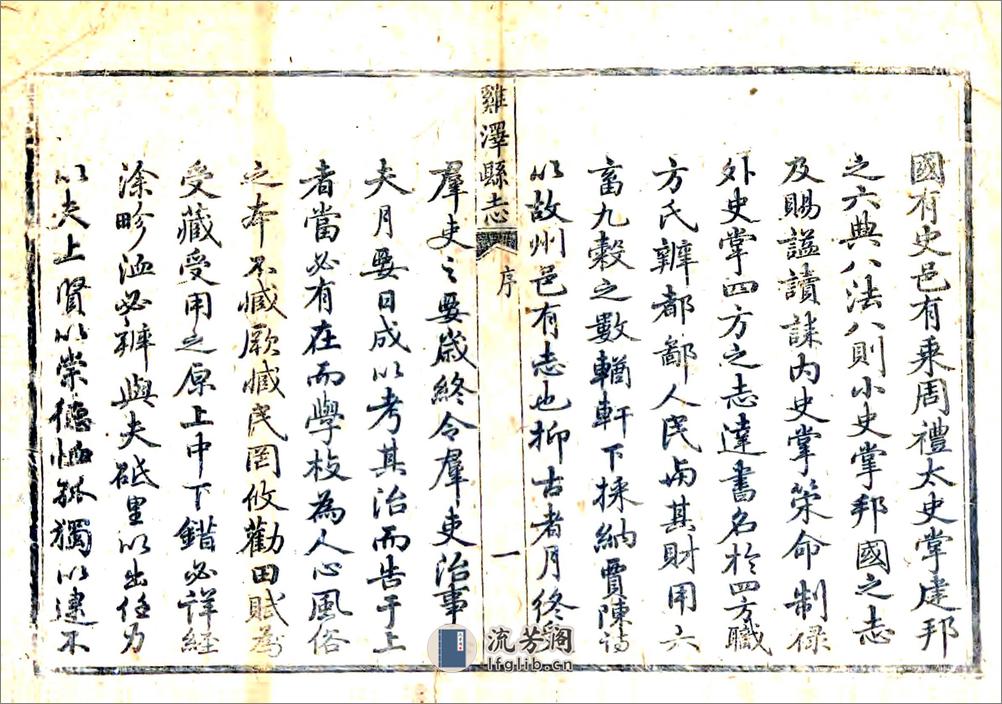 國有史邑有乘周禮太史掌建邦
之六典八法八則小史掌邦國之志
及賜謚讀誄内史掌策命制祿
外史掌四方之志達書名於四方職
方氏辨都鄙人民與其財用六
畜九穀之數輶軒下採納賈陳詩
以故州邑有志也抑古者月終
雞澤縣志
序
一
羣吏之要歲終令羣吏治事
夫月要日成以考其治而告于上
者當必有在而學校為人心風俗
之本不臧厥臧民罔攸勸田賦為
受藏受用之原上中下錯必詳經
涂畛洫必辨與夫砥里以出任力
以夫上賢以崇德恤孤獨以逮不
流芳閣
lfglib.cn